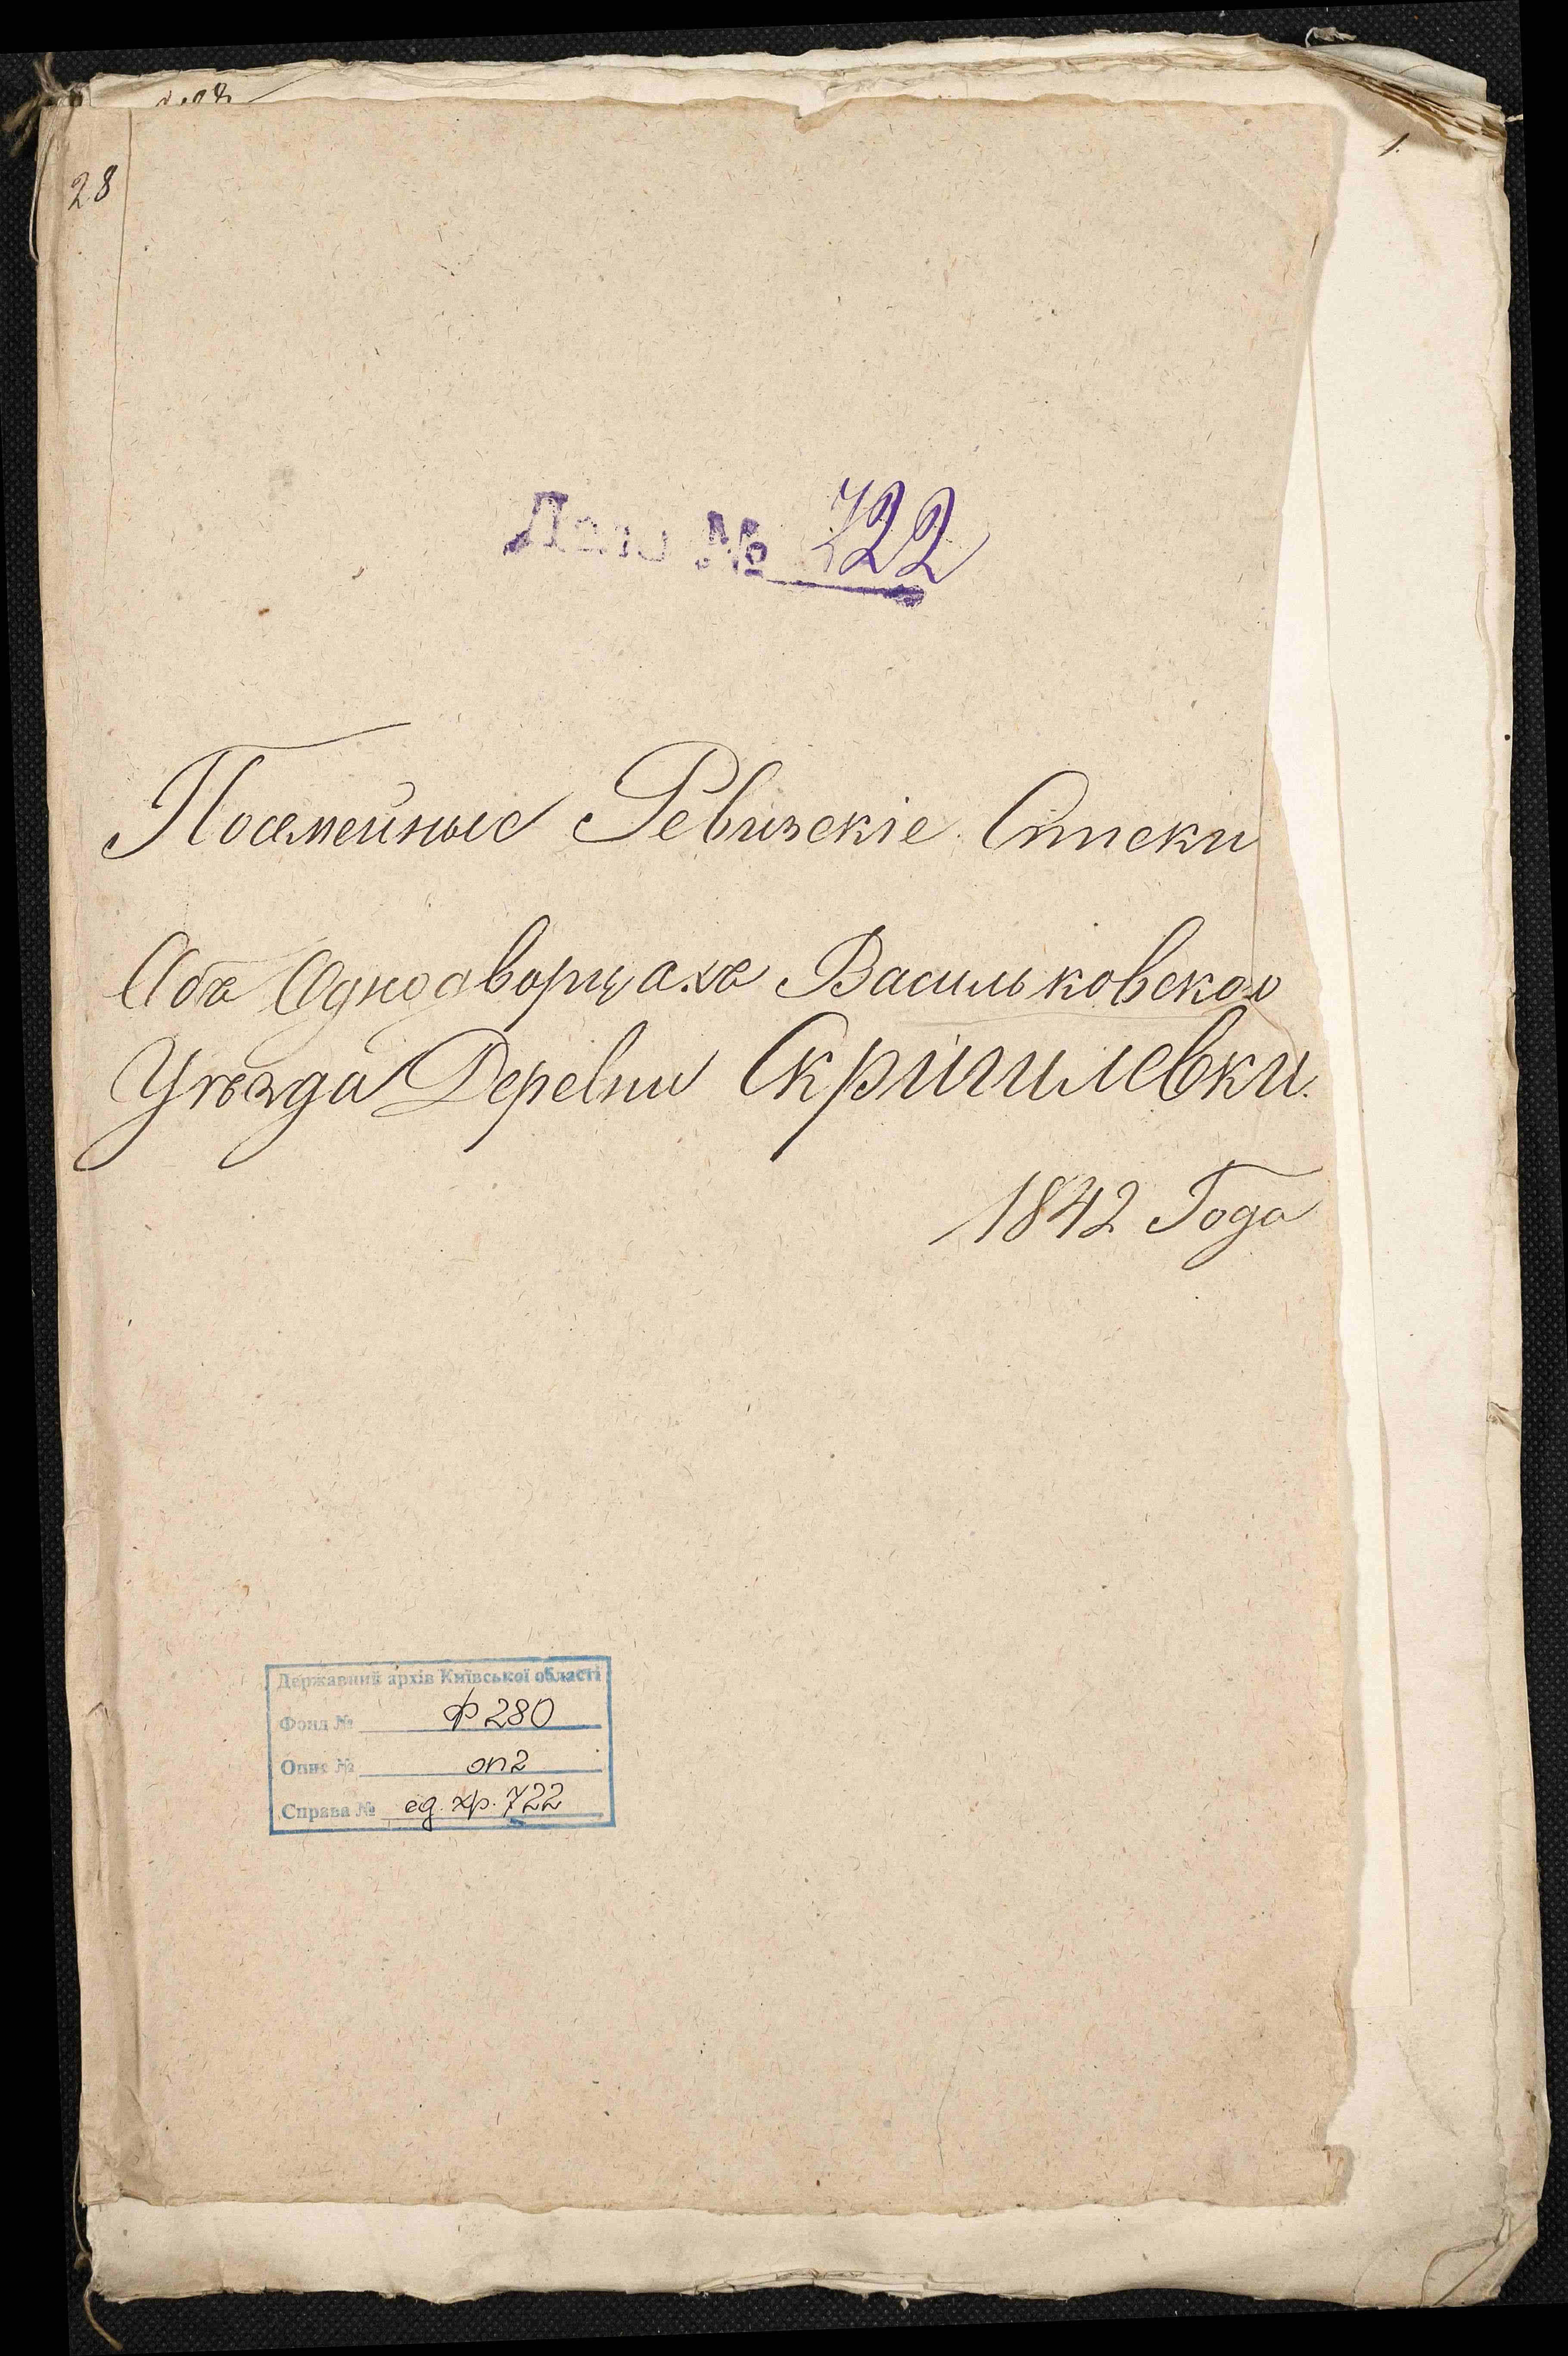 28
1.
Дело № 722
Посемейные Ревизскіе Списки
Объ Однодворцахъ Васильковскаго
Уѣзда Деревни Скригилевки.
1842 Года
Державний архів Київської області
Фонд № ф 280
Опис № оп 2
Справа № ед. хр. 722